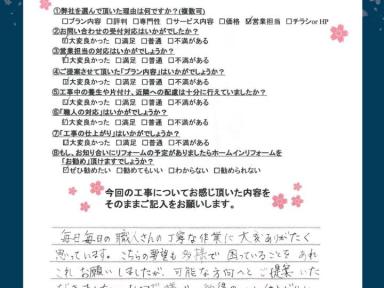 ①弊社を選んで頂いた理由は何ですか?(複数可)
□プラン内容 □評判 □専門性 □サービス内容 □価格 ☑営業担当 □チラシor HP
②お問い合わせの受付対応はいかがでしたか?
☑大変良かった □満足 □普通 □不満がある
③営業担当の対応はいかがでしょうか?
☑大変良かった □満足 □普通 □不満がある
④ご提案させて頂いた「プラン内容」はいかがでしょうか?
☑大変良かった □満足 □普通 □不満がある
⑤工事中の養生や片付け、近隣への配慮は十分に行えていましたか?
☑大変良かった □満足 □普通 □不満がある
⑥「職人の対応」はいかがでしょうか?
☑大変良かった □満足 □普通 □不満がある
⑦「工事の仕上がり」はいかがでしょうか?
☑大変良かった □満足 □普通 □不満がある
⑧もし、お知り合いにリフォームの予定がありましたらホームインリフォームを
「お勧め」頂けますでしょうか?
☑ぜひ勧めたい □勧めてもいい □わからない □勧められない
今回の工事についてお感じ頂いた内容を
そのままご記入をお願いします。
毎日毎日の職人さんの丁寧な作業に大変ありがたく
思っています。こちらの要望も多様で困っていることをあれ
これお願いしましたが、可能な方向へとご提案いた